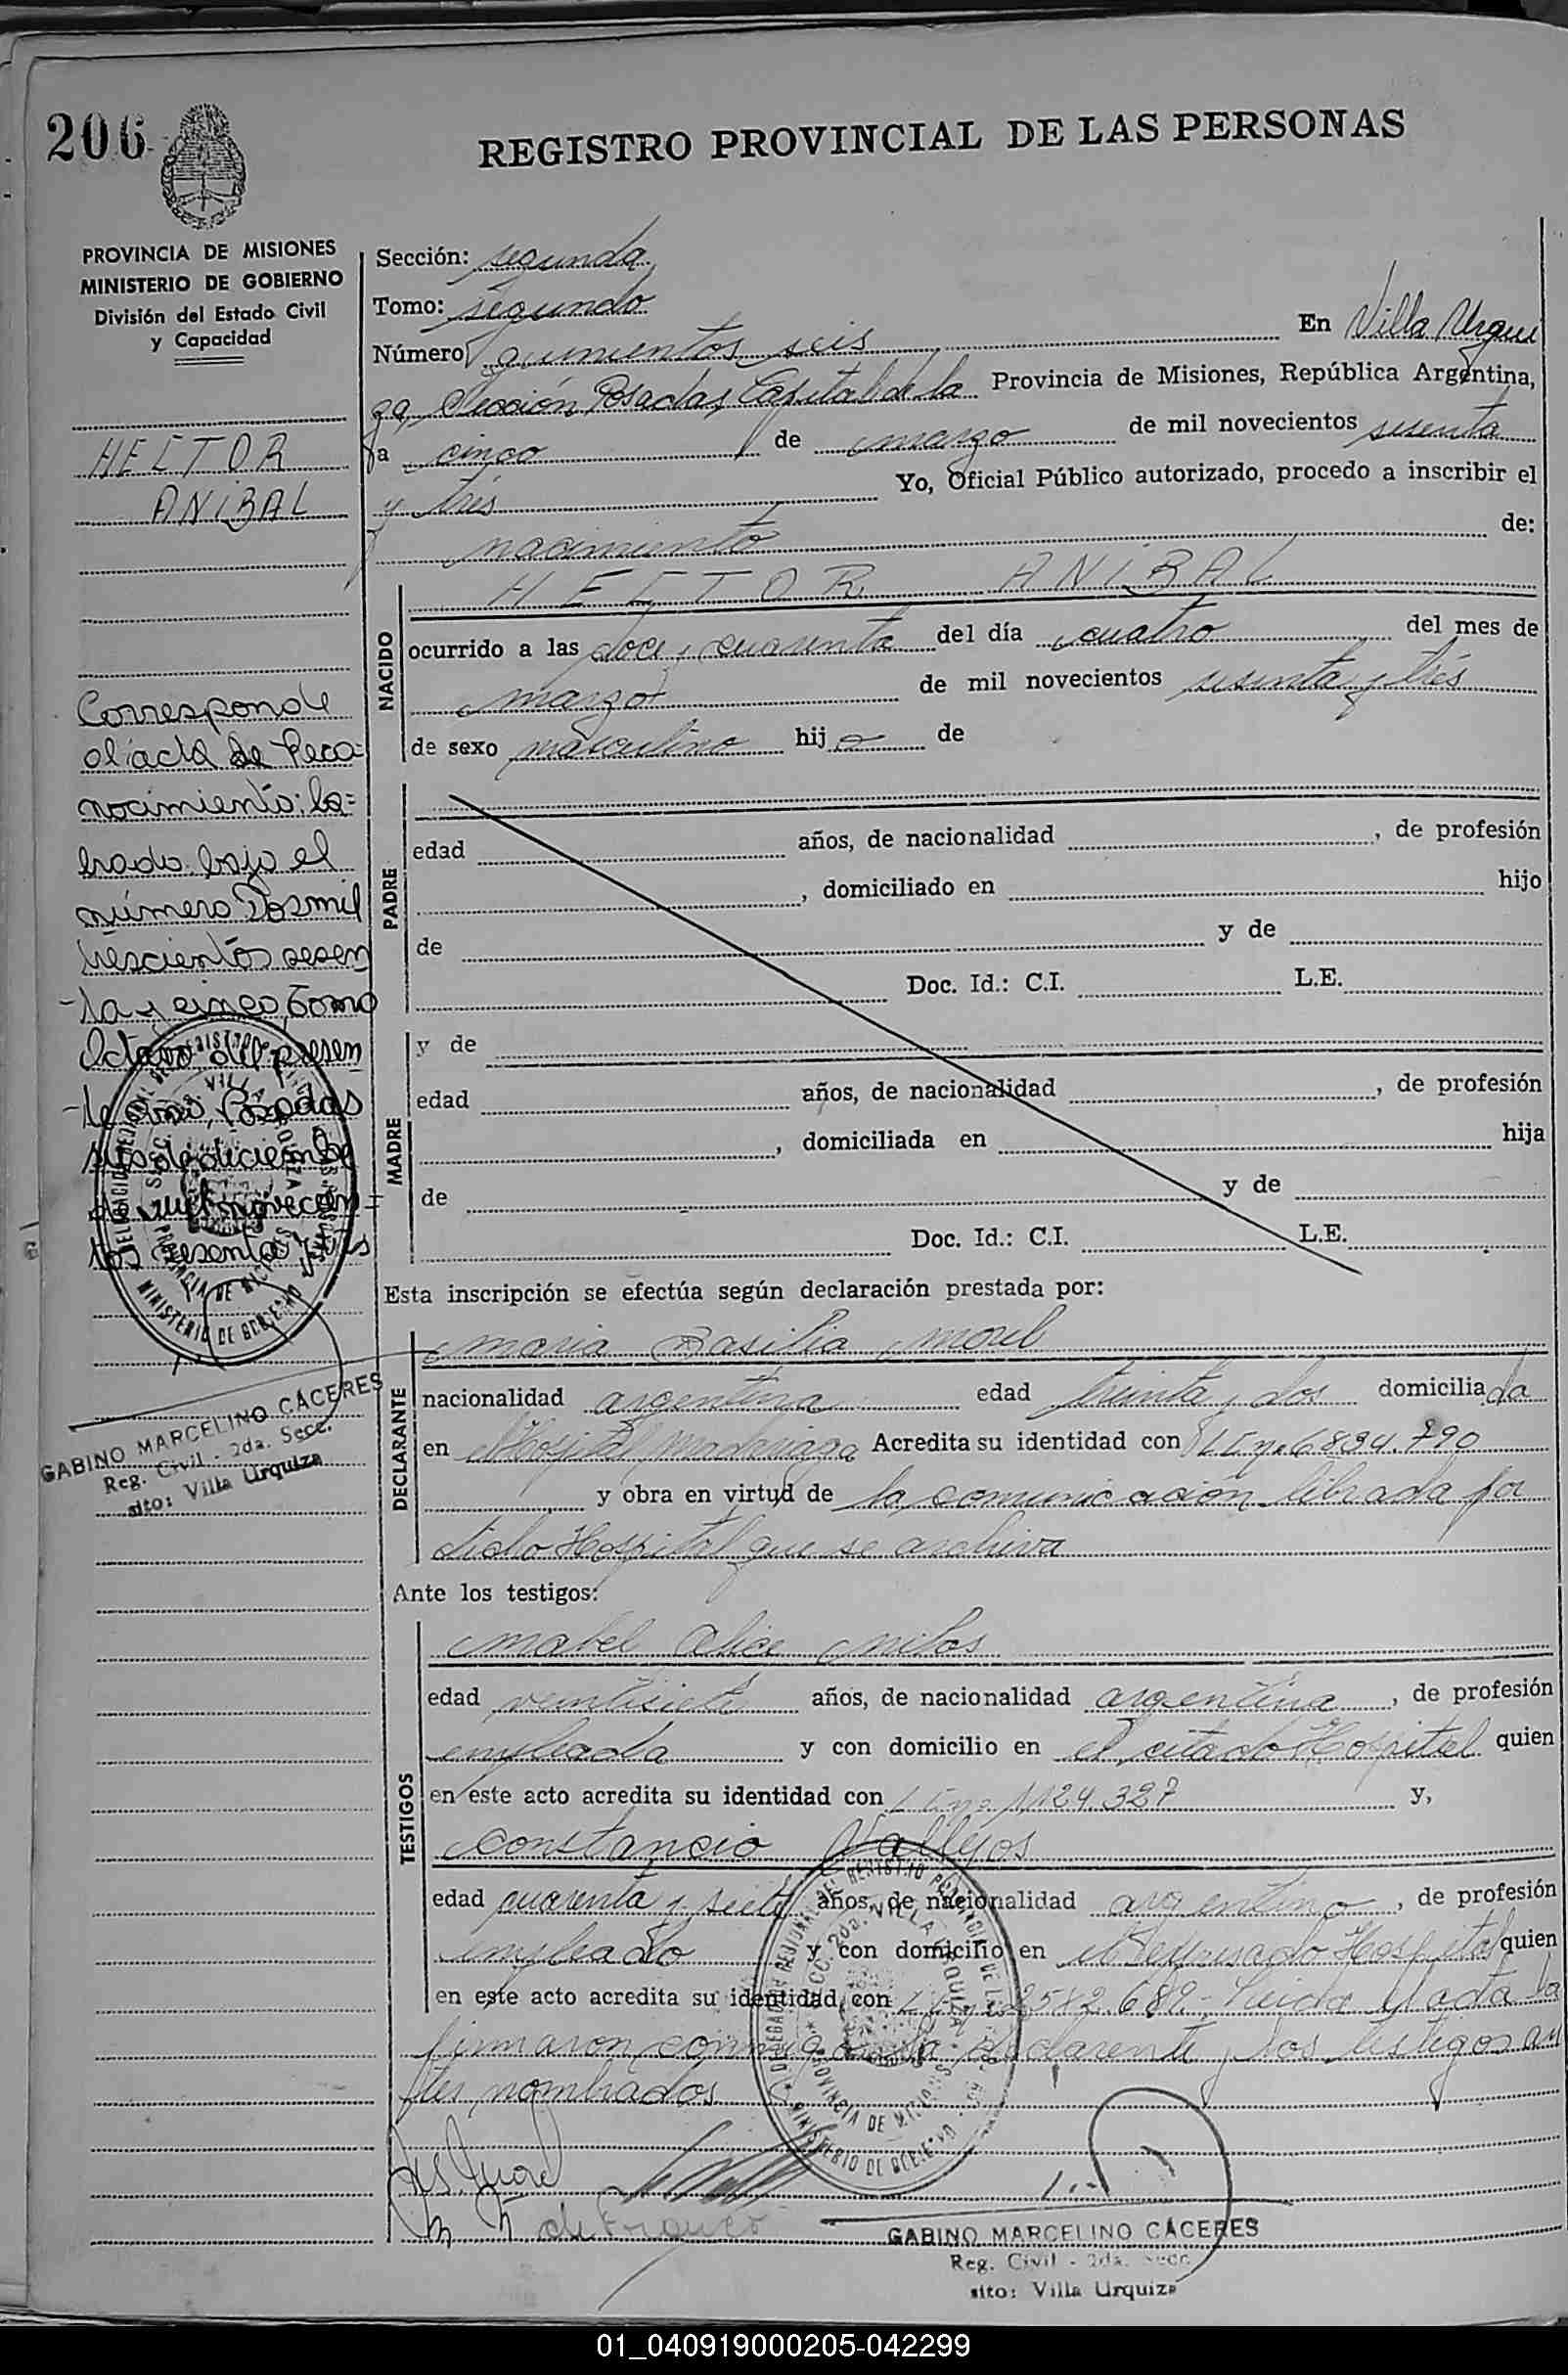 206
REGISTRO PROVINCIAL DE LAS PERSONAS
PROVINCIA DE MISIONES
MINISTERIO DE GOBIERNO
División del Estado Civil
y Capacidad
HECTOR
ANIBAL
Corresponde
al acta de Reco-
nocimiento: la=
brado bajo el
número Dosmil
trescientos sesen
-ta y cinco, Tomo
Octavo del presen
-te año, Posadas
de diciembre
de mil novecien=
tos sesenta y tres
GABINO MARCELINO CÁCERES
Reg. Civil - 2da. Secc.
sito: Villa Urquiza
Sección: segunda
Tomo: segundo
Número quinientos seis En Villa Urqui
za, Sección Posadas, Capital de la Provincia de Misiones, República Argentina,
a cinco de marzo de mil novecientos sesenta
y tres Yo, Oficial Público autorizado, procedo a inscribir el
nacimiento de:
NACIDO
HECTOR ANIBAL
ocurrido a las doce y cuarenta del día cuatro del mes de
marzo de mil novecientos sesenta y trés
de sexo masculino hijo de
PADRE
edad años, de nacionalidad , de profesión
, domiciliado en hijo
de y de
Doc. Id.: C.I. L.E.
MADRE
y de
edad años, de nacionalidad , de profesión
, domiciliada en hija
de y de
Doc. Id.: C.I. L.E.
Esta inscripción se efectúa según declaración prestada por:
DECLARANTE
Maria Basilia Morel
nacionalidad argentina edad treinta y dos domiciliada
en el Hospital Madariaga Acredita su identidad con 6.834.790
y obra en virtud de la comunicación librada por
dicho Hospital que se archiva
Ante los testigos:
TESTIGOS
Mabel Alice
edad veintisiete años, de nacionalidad argentina, de profesión
empleada y con domicilio en el citado Hospital quien
en este acto acredita su identidad con 1.124.327 y,
Constancio Vallejos
edad cuarenta y siete años, de nacionalidad argentino, de profesión
empleado y con domicilio en el expresado Hospital quien
en este acto acredita su identidad con 2582.689.- Leida el acta la
firmaron conmigo la declarante y los testigos an
tes nombrados
GABINO MARCELINO CÁCERES
Reg. Civil - 2da. Secc.
sito: Villa Urquiza
01_040919000205-042299